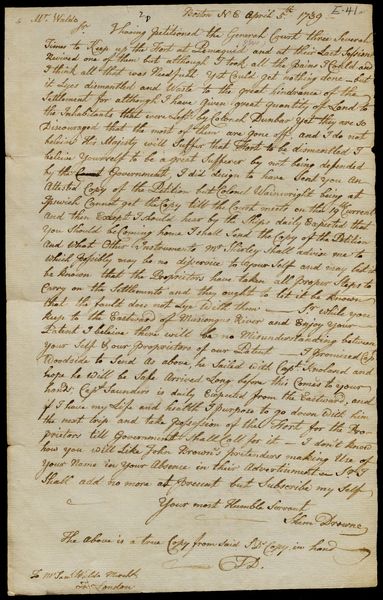 Mr. Waldo
Boston N E April 5th 1739
E-41
Sr
I having Petitioned the General Court three Several
Times to Keep up the Fort at Pemaquid and at their Last Session
Revived one of them but although I took all the Pains I Could and
I think all that was Needfull yet Could get nothing done - but
it Lyes dismantled and Waste to the great hindrance of the
Settlement for although I have Given great quantity of Land to
the Inhabitants that were Left by Colonel Dunbar yet they are so
Discouraged that the most of them are gone off and I do not
believe His Majesty will Suffer that Fort to be dismantled I
believe Yourself to be a great Sufferer by not being defended
by the Government I did design to have Sent You an
Attested Copy of the Petition but Colonel Wainwright being at
Ipswich Cannot get the Copy till the Court meets on the 19th Current
And then Except I should hear by the Ships daily Expected that
You Should be Coming home I shall Send the Copy of the Petition
And What Other Instruments Mr. Shirley Shall advise me to
which Possibly may be no disservice to Your Self and may Let it
be known that the Propriators have taken all proper Steps to
Carry on the Settlements and they ought to let it be known
that the fault does not Lye with them - Sr while you
keep to the Eastward of Misconges River and Enjoy your
Patent I believe there will be no Misunderstanding between
Your Self & our Propriators of our Patent I Promised Capt
Woodside to Send as above, he Sailed with Capt
hope he will be Safe Arrived Long before this Comes to Your
hands, Capt Saunders is daily Expected from the Eastward, and
if I have my Life and health I purpose to go down with him
the next trip and take possession of the Fort for the Pro-
prietors till Government Shall Call for it - I don't know
how you will Like John Brown's pretenders making Use of
Your Name in Your Absence in their Advertisment - Sr I
Shall add no more at Present but Subscribe my Self
Your most Humble Servant
Shem Drowne
The above is a true Copy from said Copy in hand
SD.
To Mr Saml Waldo Mercht
In London